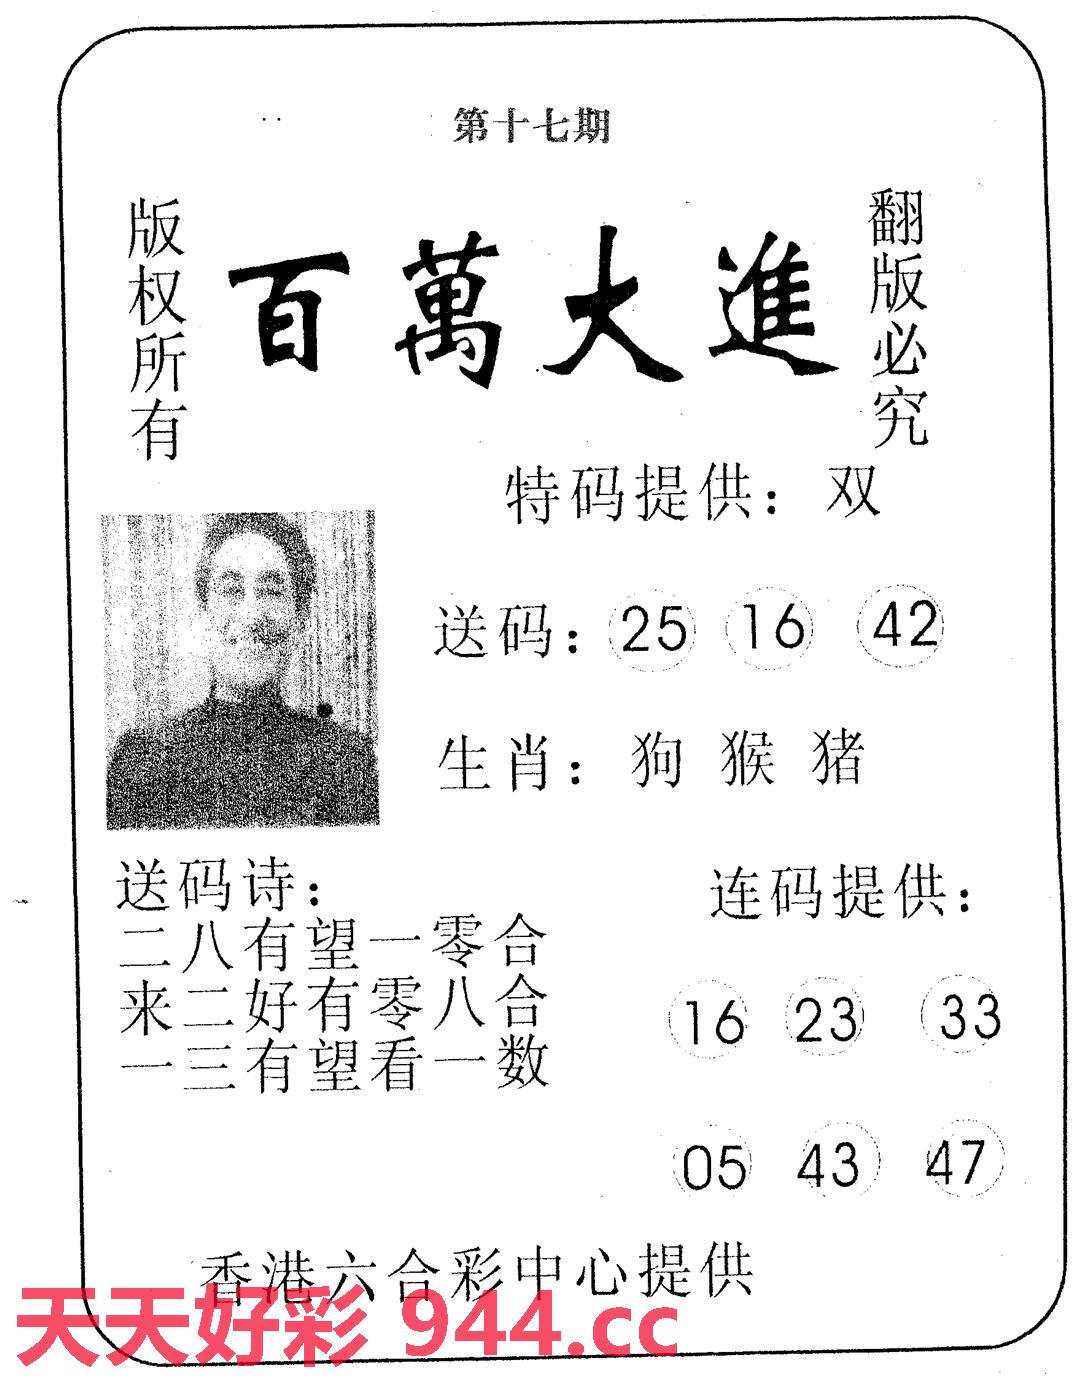 第十七期
版权所有
百萬大進
翻版必究
特码提供：双
送码：25 16 42
生肖：狗 猴 猪
送码诗：
二八有望一零合
来二好有零八合
一三有望看一数
连码提供：
16 23 33
05 43 47
香港六合彩中心提供
天天好彩 944.cc